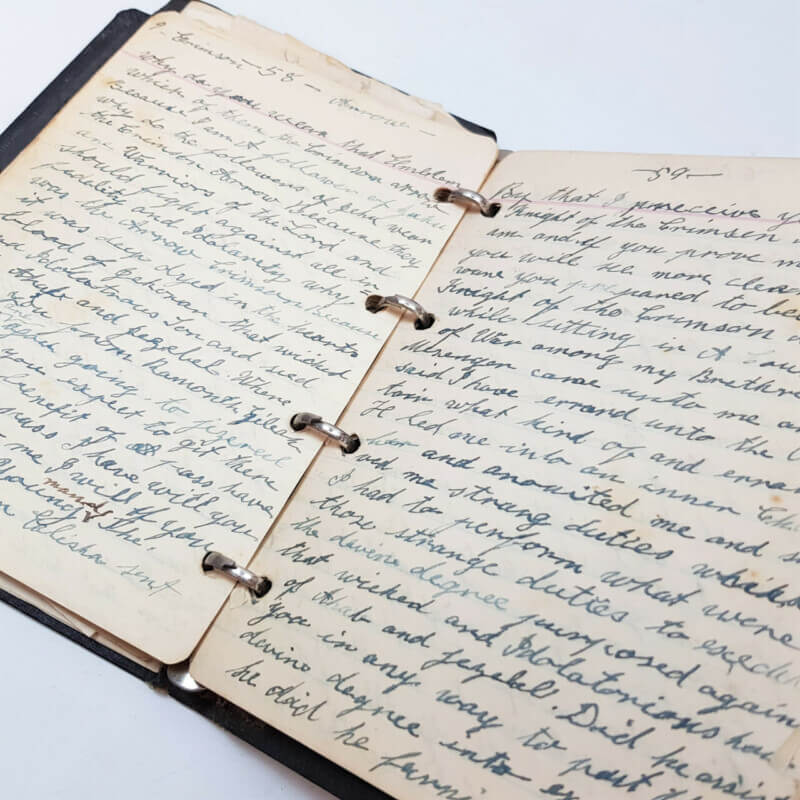 Crimson - 58 - Arrow -
Why do you wear that Emblem
which of them the Crimson arrow
Because I am A follower of Jehu
why do the followers of Jehu wear
the Crimson Arrow Because they
are Warriors of the Lord and
should fight against all in-
fidelity and Idolatry why
was the Arrow Crimson because
it was deep dyed in the hearts
blood of Jehoram that wicked
and Idolatrous Son and seed
of Ahab and Jezebel Where
are you from Ramoth Gilead
Where going to Jezreel
you expect to get there
benefit of A pass have
pass I have will you
me I will If you
Young mans the
Elisha sent
-59-
By that I preceive y
Knight of the Crimson
am and if you prove m
you will be more clear
were you prepared to be
Knight of the Crimson
while sitting in A
of War among my Brethre
Messenger came unto me an
said I have errand unto the
tain what kind of and erran
He led me into an inner Ch
and anounited me and s
me strange duties which
I had to perform what were
those strange duties to execu
the devine degree purposed again
that wicked and Idolatonious hou
of Ahab and Jezebel. Did he assist
you in any way to put
devine degree into ex
he did he furni